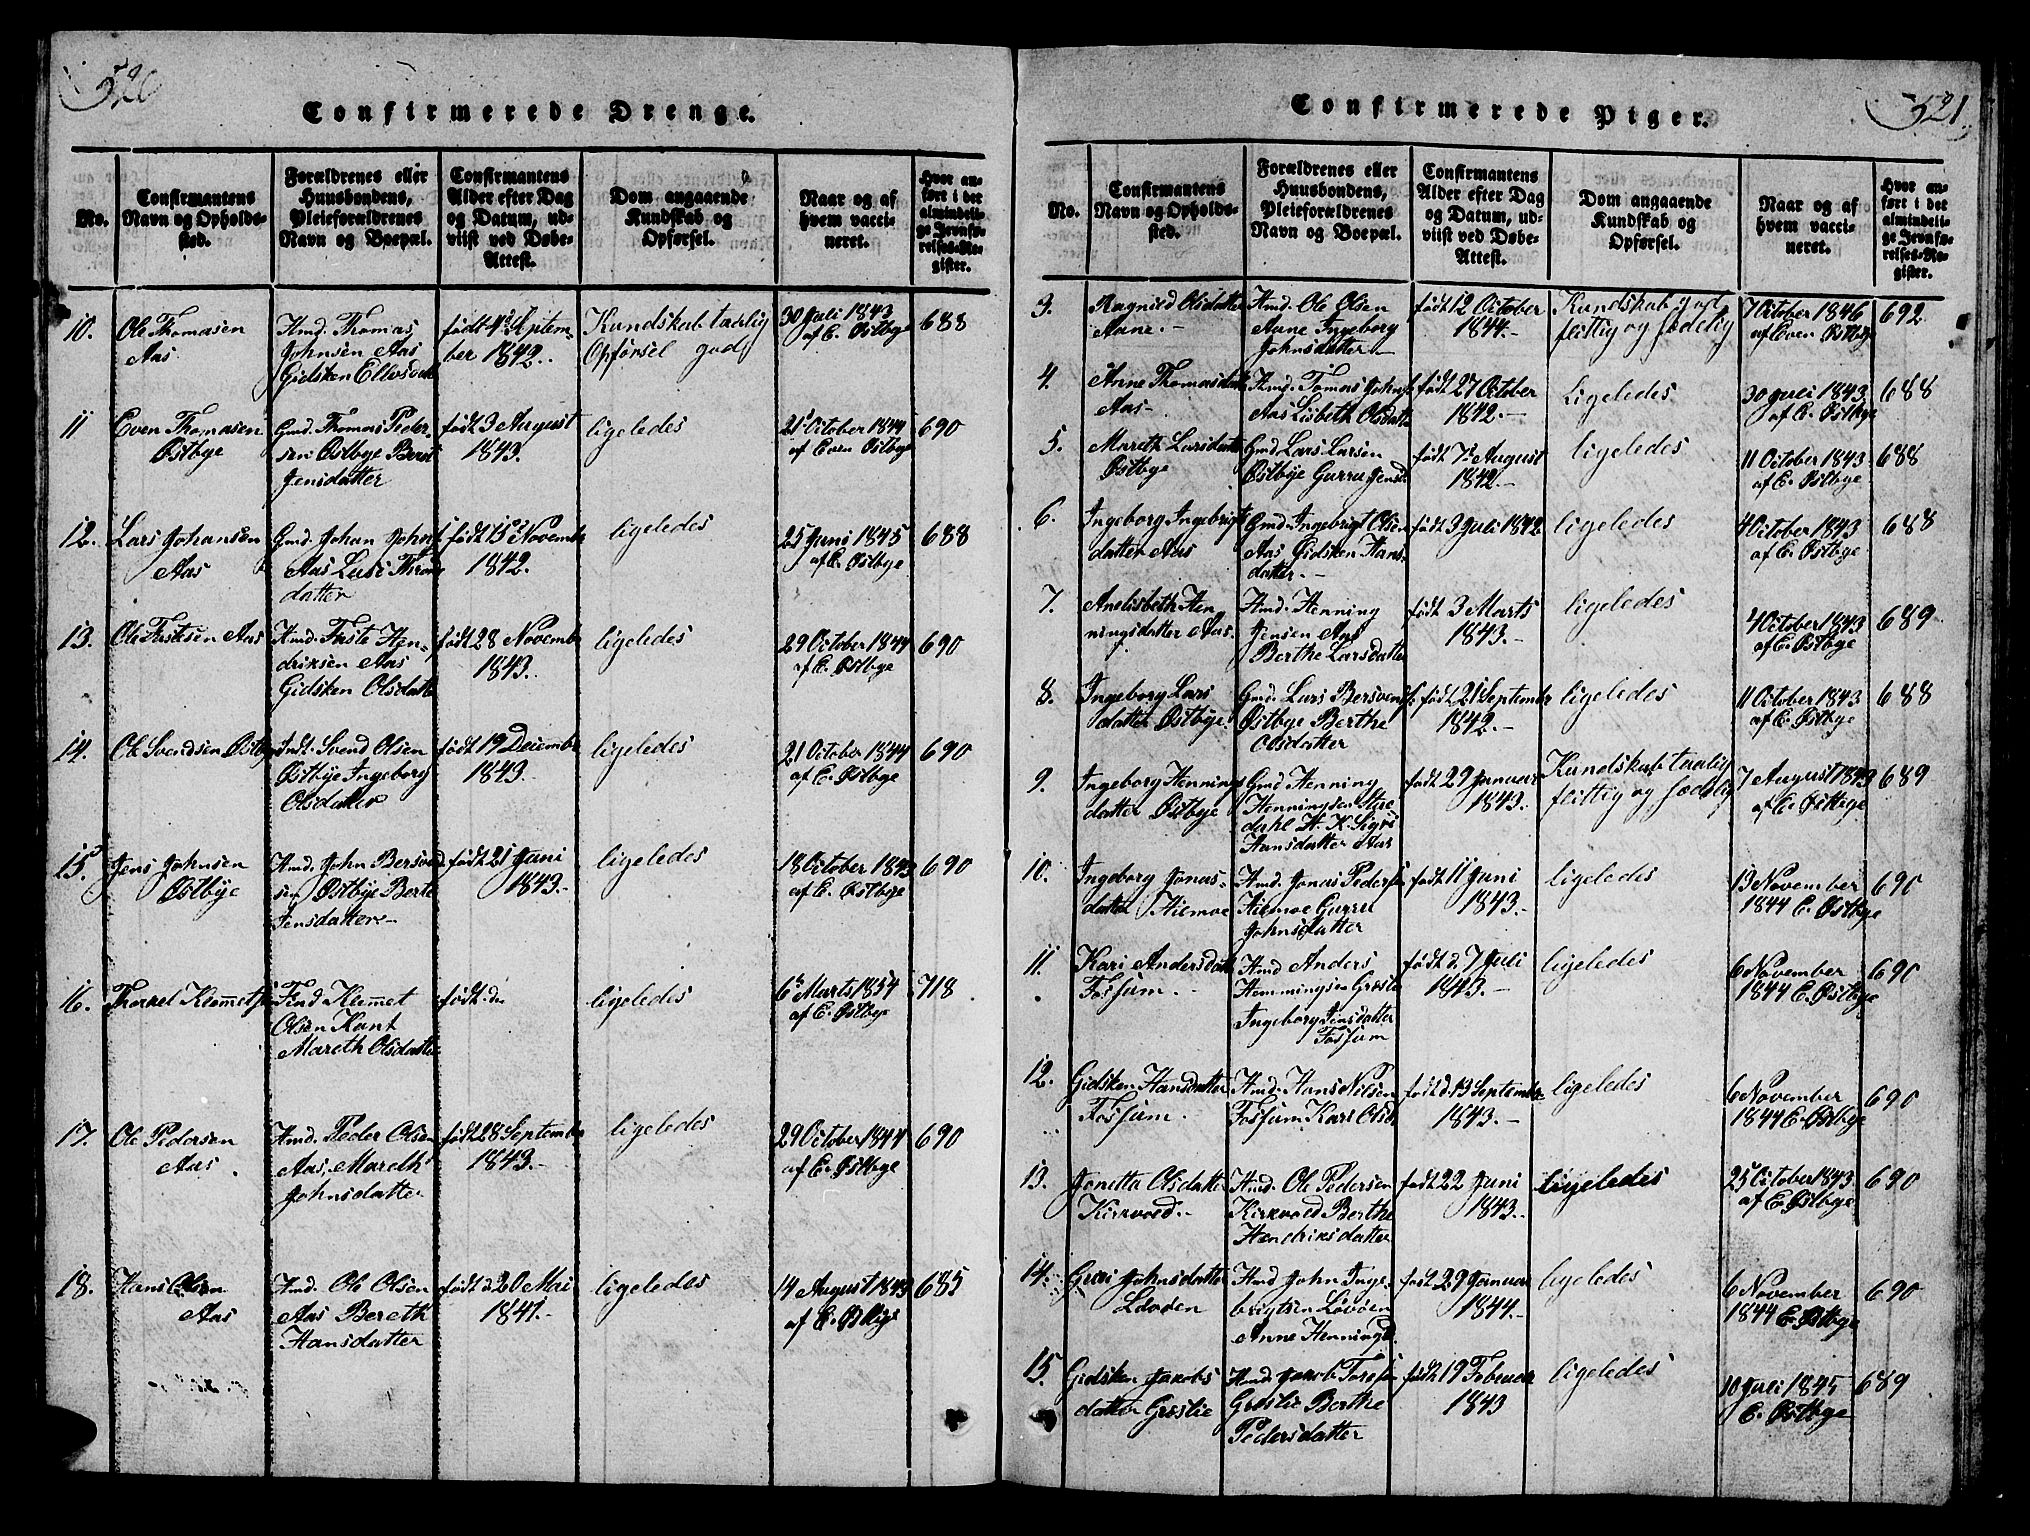 520
Confirmerede Drenge.
No.
Confirmantens
Navn og Opholds-
sted.
Forældrenes eller
Huusbondens,
Pleieforældrenes
Navn og Boepæl.
Confirmantens
Alder efter Dag
og Datum, ud-
viist ved Døbe-
Attest.
Dom angaaende
Kundskab og
Opførsel.
Naar og af
hvem vacci-
neret.
Hvor an-
ført i det
almindeli-
ge Jevnfø-
relses-Re-
gister.
10.
Ole Thomasen
Aas
Hmd. Thomas
Johnsen Aas
Gidsken
født 4 Septem-
ber 1842.
Kundskab taalig
Opførsel god
30 Juli 1843
af E. Østbye
688
11
Even Thomasen
Østbye
Gmd. Thomas Peder-
sen Østbye Beret
Jensdatter
født 3 August
1843.
ligeledes
21 October 1844
af Even Østbye
690
12.
Lars Johansen
Aas
Gmd. Johan Johns
Aas Lusi
datter
født 13 Novemb
1842.
ligeledes
25 Juni 1845
af E. Østbye
688
13.
Ole Fastesen Aas
Hmd. Faste Hen-
driksen Aas
Gidsken Olsdatte
født 28 Novemb
1843.
ligeledes
29 October 1844
af E. Østbye
690
14.
Ole Svendsen Østbye
Indt. Svend Olsen
Østbye Ingeborg
Olsdatter
født 19 Decembr
1843.
ligeledes
21 October 1844
af E. Østbye
690
15.
Jens Johnsen
Østbye
Hmd. John Bersvend
sen Østbye Berte
Jensdatter
født 21 Juni
1843.
ligeledes
18 October 1843
af E. Østbye
690
16.
Torkel Klemmets
Find Klemmet
Olsen Kant
Mareth Olsdatte
født d
ligeledes
6 Marts 1854
af E. Østbye
718
17.
Ole Pedersen
Aas
Hmd. Peder Olsen
Aas, Mareth
Johnsdatter
født 28 Septembr
1843.
ligeledes
29 October 1844
af E. Østbye
690
18.
Hans Olsen
Aas
Hmd. Ole Olsen
Aas Bereth
Hansdatter
født d 20 Mai
1841.
ligeledes
14 August 1843
af E. Østbye
685
521
Confirmerede Piger.
No.
Confirmantens
Navn og Opholds-
sted.
Forældrenes eller
Huusbondens,
Pleieforældrenes
Navn og Boepæl.
Confirmantens
Alder efter Dag
og Datum, ud-
viist ved Døbe-
Attest.
Dom angaaende
Kundskab og
Opførsel.
Naar og af
hvem vacci-
neret.
Hvor an-
ført i det
almindeli-
ge Jevnfø-
relses-Re-
gister.
3.
Ragnild Olsdatter
Aune.
Hmd. Ole Olsen
Aune Ingeborg
Johnsdatter
født 12 October
1844.
Kundskab god
flittig og sædelig
7 October 1846
af Even Østbye
692
4.
Anne Thomasdatte
Aas
Hmd. Tomas Johns
Aas Lisbeth Olsdatte
født 27 October
1842.
ligeledes
30 Juli 1843
af E. Østbye
688
5.
Mareth Larsdatte
Østbye
Gmd Lars Larsen
Østbye Gurru Jensd
født 7 August
1842.
ligeledes
11 October 1843
af E. Østbye
688
6.
Ingeborg Ingebrigts
datter Aas
Gmd. Ingebrigt Olsen
Aas Gidsken Hans-
datter.
født 3 Juli 1842
ligeledes
4 October 1843
af E. Østbye
688
7.
Anelisbeth Hen
ningsdatter Aas.
Hmd. Henning
Jensen Aas
Berthe Larsdatter
født 3 Marts
1843.
ligeledes
4 October 1843
af E. Østbye
689
8.
Ingeborg Lars
datter Østbye
Gmd Lars Bersvends
Østbye Berthe
Olsdatter
født 21 Septembr
1842.
ligeledes
11 October 1843
af E. Østbye
688
9.
Ingeborg Hennings
datter Østbye
Gmd Henning
Henningsen Stue
dahl H. K. Sigri
Hansdatter Aas
født 29 Januar
1843.
Kundskab taalig
flittig og sædelig
7 August 1843
af E. Østbye
689
10.
Ingeborg Jonas-
datter Hiemoe
Hmd. Jonas Peders
Hiemoe Gurru
Johnsdatter
født 11 Juni
1843.
ligeledes
13 November
1844 E. Østbye
690
11.
Kari Andersdatt
Fossum.
Hmd Anders
Hemmingsen Græslie
Ingeborg Jensdatter
Fossum
født d. 7 Juli
1843.
ligeledes
6 November
1844 E. Østbye
690
12.
Gidsken Hansdatter
Fossum.
Hmd. Hans Nilsen
Fossum Kari Olsd
født d. 13 Septembr
1843.
ligeledes
6 November
1844 E. Østbye
690
13.
Jonetta Olsdatter
Kirkvold.
Hmd. Ole Pedersen
Kirkvold Berthe
Hendriksdatter
født 22 Juni
1843.
ligeledes
25 October 1843
af E. Østbye
690
14.
Johnsdatter
Løvøen
Hmd John Inge-
brigtsen Løvøen
Anne Hennings
født 29 Januar
1844.
ligeledes
6 November
1844 E. Østbye
690
15.
Gidsken Jakobs
datter Græslie
Hmd. Jakob Tores
Græslie Berthe
Pedersdatter
født 19 Februar
1843
ligeledes
10 Juli 1845
E. Østbye
689